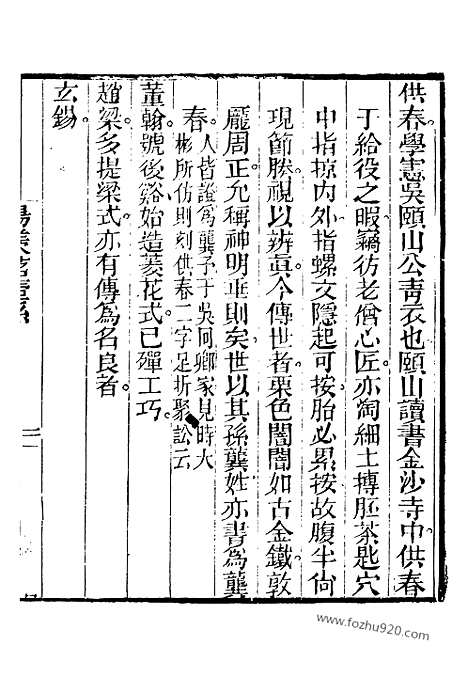 供春學憲吳頤山公青衣也頤山讀書金沙寺中供春
于給役之暇竊彷老僧心匠亦淘細土摶胚茶匙穴
中指掠內外指螺文隱起可按胎必累按故腹半尙
現節腠視以辨眞今傳世者栗色闇闇如古金鐵敦
龎周正允稱神明垂則矣世以其孫龔姓亦書爲龔
春人皆證爲龔予于吳冏卿家見時大
彬所仿則刻供春二字足折聚訟云
董翰號後谿始造菱花式已殫工巧
趙梁多提梁式亦有傳爲名良者
玄錫
陽羨茗壺系
www.fozhu920.com